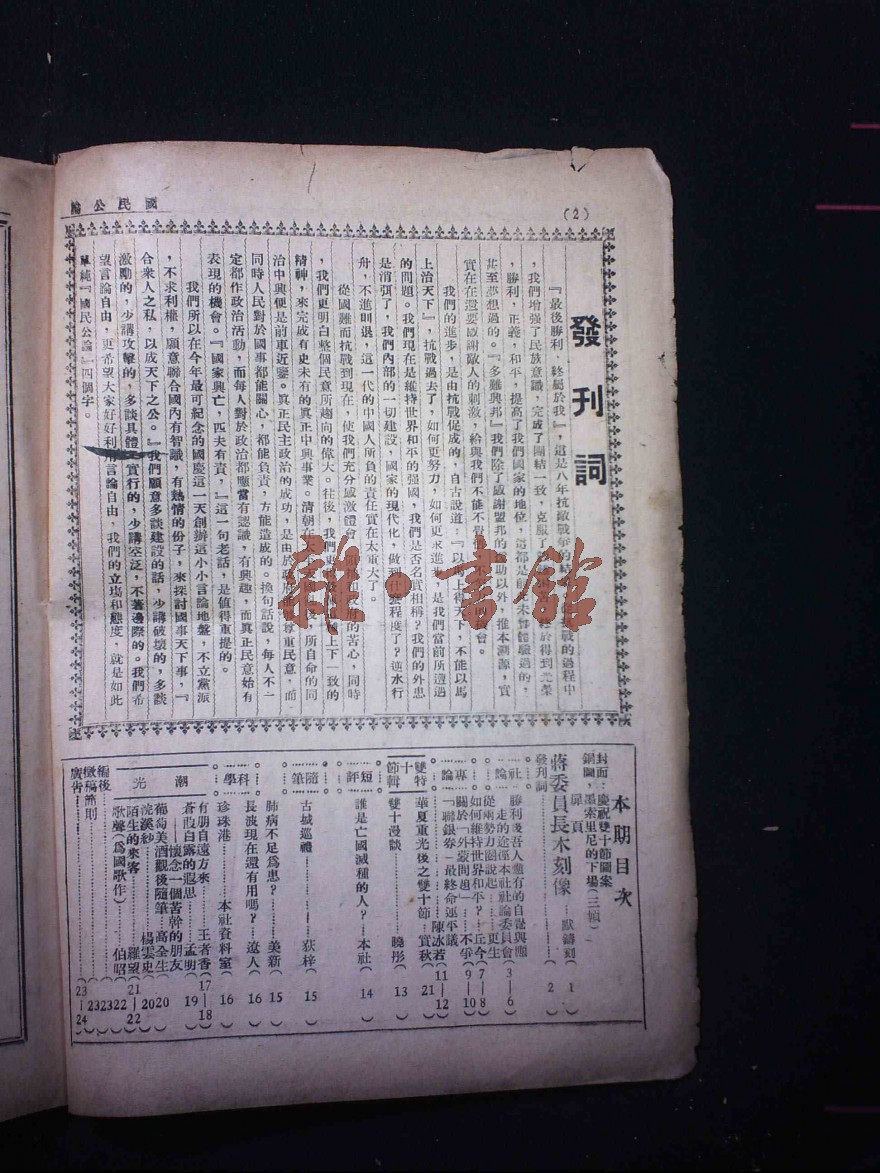 國民公論
(2)
發刊詞
『最後勝利，終屬於我』，這是八年抗敵戰爭的結
的過程中
，我們增強了民族意識，完成了團結一致，克服了
於得到光榮
，勝利，正義，和平，提高了我們國家的地位，這都是
未曾體驗過的，
甚至夢想過的。『多難興邦』我們除了感謝盟邦的
助以外，推本溯源，實
實在在還要感謝敵人的刺激，給與我們不能不
會。
我們的進步，是由抗戰促成的，自古說道：『以馬上得天下，不能以馬
上治天下』，抗戰過去了，如何更努力，如何更求進步，是我們當前所遭遇
的問題。我們現在是維持世界和平的强國，我們是否名實相稱？我們的外患
是消弭了，我們內部的一切建設，國家的現代化，做到什麽程度了？逆水行
舟，不進則退，這一代的中國人所負的責任實在太重大了。
從國難而抗戰到現在，使我們充分感激體會
府的苦心，同時
，我們更明白整個民意所趨向的偉大。往後，我們更
上下一致的
精神，來完成有史未有的真正中興事業。清朝在太
後，所自命的同
治中興便是前車近鑒。真正民主政治的成功，是由於政府能
尊重民意，而
同時人民對於國事都能關心，都能負責，方能造成的。換句話說，每人不一
定都作政治活動，而每人對於政治都應當有認識，有興趣，而真正民意始有
表現的機會。『國家興亡，匹夫有責，』這一句老話，是值得重提的。
我們所以在今年最可紀念的國慶這一天創辦這小小言論地盤，不立黨派
，不求利權，願意聯合國內有智識，有熱情的份子，來探討國事天下事，『
合衆人之私，以成天下之公。』我們願意多談建設的話，少講破壞的，多談
激勵的，少講攻擊的，多談具體
實行的，少講空泛，不着邊際的。我們希
望言論自由，更希望大家好好利用言論自由，我們的立場和態度，就是如此
單純『國民公論』四個字。
本期目次
封面：慶祝雙十節圖案
銅圖，墨索里尼的下場（三幀）
扉頁
蔣委員長木刻像……默鑄刻（1）
發刊詞……（2）
社論
勝利後吾人應有的自覺與應
走的途徑本社社論委員會（3—6）
從兩勢力圈說起……更生
如何維持世界和平？……丘今（7—8）
專論
關於「外蒙問題」……不爭（9—10）
「聯銀券」最終命運平議……陳冰若（11—12）
雙十節特輯
華夏重光後之雙十節…實秋（21）
雙十漫談……曉彤（13）
短評
誰是亡國滅種的人？…本社（14）
隨筆
古城巡禮……荻梓（15）
科學
肺病不足爲患？……美新（15）
長波現在還有用嗎？…遼人（16）
珍珠港……本社資料室（16）
潮光
有朋自遠方來……王者香（17—18）
蒼葭白露的遐思……孟明（19）
——懷念一個苦幹的朋友
葡萄美酒觀後隨筆…高全生（20）
浣溪紗……楊雲史（20）
陌生的來客……羅望（21—22）
歌聲（爲國歌作）……伯昭（22）
編後……（23）
徵稿簡則……（23）
廣告……（23—24）
雜·書館